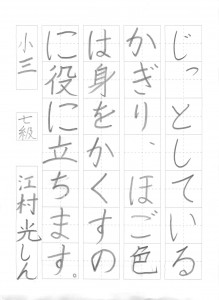 じっとしている
かぎり、ほご色
は身をかくすの
に役に立ちます。
小三 七級 江村光しん